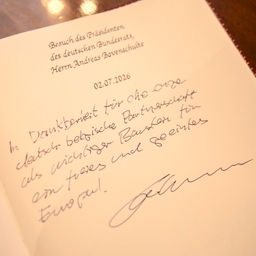 Besuch des Präsidenten
des deutschen Bundesrats,
Herrn Andreas Bovenschulte
02.07.2026
In Dankbarkeit für die enge
deutsch belgische Partnerschaft
als wichtiger Baustein für
ein freies und geeintes
Europa!